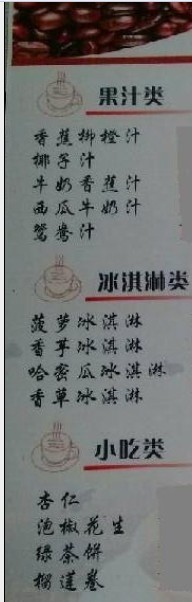 果汁类
香蕉柳橙汁
椰子汁
牛奶香蕉汁
西瓜牛奶汁
鸳鸯汁
冰淇淋类
菠萝冰淇淋
香芋冰淇淋
哈密瓜冰淇淋
香草冰淇淋
小吃类
杏仁
泡椒花生
绿茶饼
榴莲卷